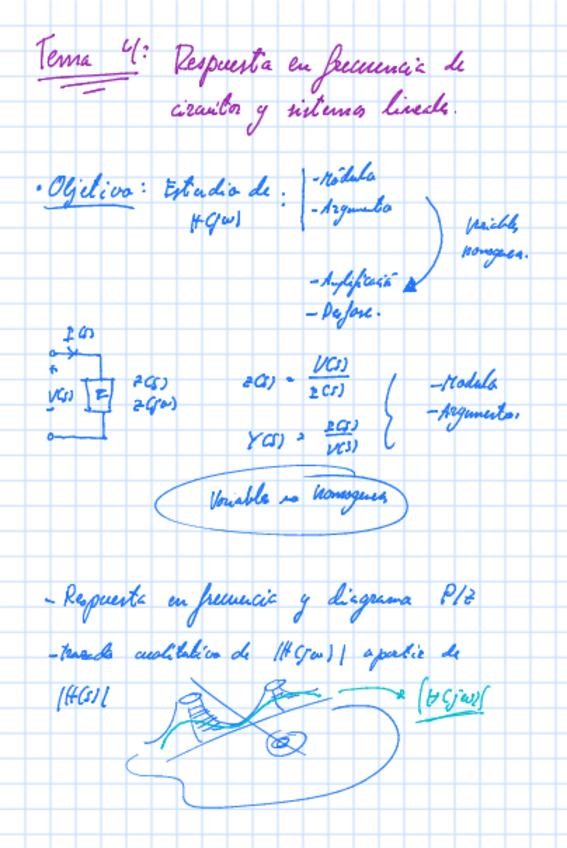 Tema 4: Respuesta en frecuencia de
circuitos y sistemas lineales.
• Objetivo: Estudio de:
H(jω)
- Módulo
- Argumento
Variables
homogeneas.
- Amplificación
- Desfase.
I(s)
+
V(s)
-
Z
Z(s)
Z(jω)
Z(s) = V(s)/I(s)
Y(s) = I(s)/V(s)
- Modulo
- Argumentos
Variables no homogeneas
- Respuesta en frecuencia y diagrama P/Z
- trazado cualitativo de |H(jω)| a partir de
|H(s)|
|H(jω)|